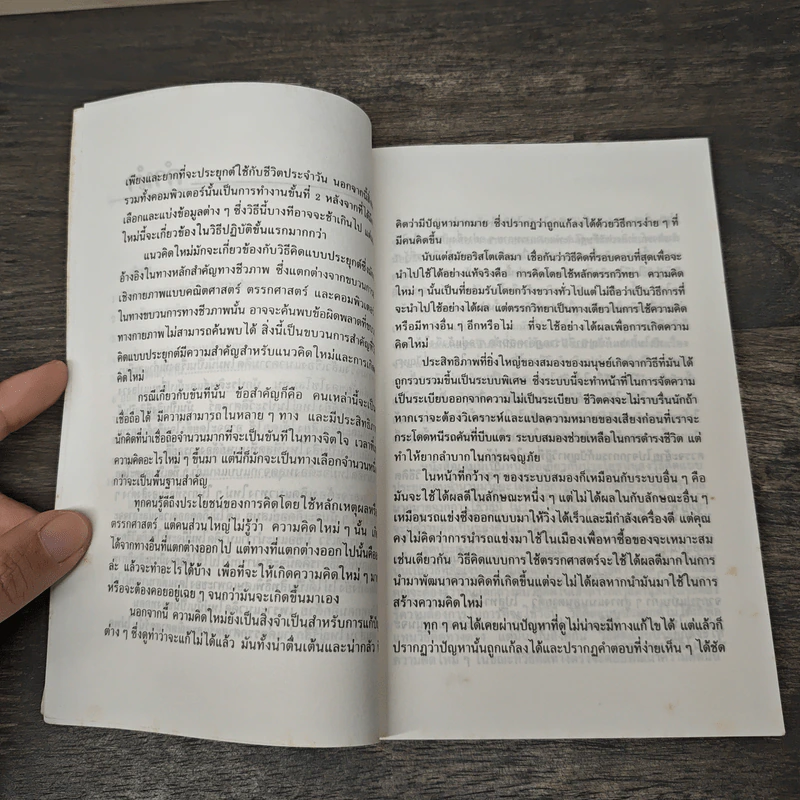 เพียงและยากที่จะประยุกต์ใช้กับชีวิตประจำวัน นอกจากนี้
รวมทั้งคอมพิวเตอร์นั้นเป็นการทำงานขั้นที่ 2 หลังจากที่ได้
เลือกและแบ่งข้อมูลต่าง ๆ ซึ่งวิธีนี้บางทีอาจจะช้าเกินไป
ใหม่นี้จะเกี่ยวข้องในวิธีปฏิบัติขั้นแรกมากกว่า
แนวคิดใหม่มักจะเกี่ยวข้องกับวิธีคิดแบบประยุกต์ซึ่ง
อ้างอิงในทางหลักสำคัญทางชีวภาพ ซึ่งแตกต่างจากขบวนการ
เชิงกายภาพแบบคณิตศาสตร์ ตรรกศาสตร์ และคอมพิวเตอร์
ในทางขบวนการทางชีวภาพนั้น อาจจะค้นพบข้อผิดพลาดที่
ทางกายภาพไม่สามารถค้นพบได้ สิ่งนี้เป็นขบวนการสำคัญ
คิดแบบประยุกต์มีความสำคัญสำหรับแนวคิดใหม่และการ
คิดใหม่
กรณีเกี่ยวกับขันทีนั้น ข้อสำคัญก็คือ คนเหล่านี้จะเป็น
เชื่อถือได้ มีความสามารถในหลาย ๆ ทาง และมีประสิทธิภาพ
นักคิดที่น่าเชื่อถือจำนวนมากที่จะเป็นขันทีในทางจิตใจ
ความคิดอะไรใหม่ ๆ ขึ้นมา แต่นี่ก็มักจะเป็นทางเลือกจำนวน
กว่าจะเป็นพื้นฐานสำคัญ
ทุกคนรู้ดีถึงประโยชน์ของการคิดโดยใช้หลักเหตุผล
ตรรกศาสตร์ แต่คนส่วนใหญ่ไม่รู้ว่า ความคิดใหม่ ๆ นั้น
ได้จากทางอื่นที่แตกต่างออกไป แต่ทางที่แตกต่างออกไปนั้นคือ
ล่ะ แล้วจะทำอะไรได้บ้าง เพื่อที่จะให้เกิดความคิดใหม่ ๆ
หรือจะต้องคอยอยู่เฉย ๆ จนกว่ามันจะเกิดขึ้นมาเอง
นอกจากนี้ ความคิดใหม่ยังเป็นสิ่งจำเป็นสำหรับการแก้
ต่าง ๆ ซึ่งดูท่าว่าจะแก้ไม่ได้แล้ว มันทั้งน่าตื่นเต้นและน่ากลัว
คิดว่ามีปัญหามากมาย ซึ่งปรากฏว่าถูกแก้ลงได้ด้วยวิธีการง่าย ๆ ที่
มีคนคิดขึ้น
นับแต่สมัยอริสโตเติลมา เชื่อกันว่าวิธีคิดที่รอบคอบที่สุดเพื่อจะ
นำไปใช้ได้อย่างแท้จริงคือ การคิดโดยใช้หลักตรรกวิทยา ความคิด
ใหม่ ๆ นั้นเป็นที่ยอมรับโดยกว้างขวางทั่วไปแต่ไม่ถือว่าเป็นวิธีการที่
จะนำไปใช้อย่างได้ผล แต่ตรรกวิทยาเป็นทางเดียวในการใช้ความคิด
หรือมีทางอื่น ๆ อีกหรือไม่ ที่จะใช้อย่างได้ผลเพื่อการเกิดความ
คิดใหม่
ประสิทธิภาพที่ยิ่งใหญ่ของสมองของมนุษย์เกิดจากวิธีที่มันได้
ถูกรวบรวมขึ้นเป็นระบบพิเศษ ซึ่งระบบนี้จะทำหน้าที่ในการจัดความ
เป็นระเบียบออกจากความไม่เป็นระเบียบ ชีวิตคงจะไม่ราบรื่นนักถ้า
หากเราจะต้องวิเคราะห์และแปลความหมายของเสียงก่อนที่เราจะ
กระโดดหนีรถคันที่บีบแตร ระบบสมองช่วยเหลือในการดำรงชีวิต แต่
ทำให้ยากลำบากในการผจญภัย
ในหน้าที่กว้าง ๆ ของระบบสมองก็เหมือนกับระบบอื่น ๆ คือ
มันจะใช้ได้ผลดีในลักษณะหนึ่ง ๆ แต่ไม่ได้ผลในกับลักษณะอื่น ๆ
เหมือนรถแข่งซึ่งออกแบบมาให้วิ่งได้เร็วและมีกำลังเครื่องดี แต่คุณ
คงไม่คิดว่าการนำรถแข่งมาใช้ในเมืองเพื่อหาซื้อของจะเหมาะสม
เช่นเดียวกัน วิธีคิดแบบการใช้ตรรกศาสตร์จะใช้ได้ผลดีมากในการ
นำมาพัฒนาความคิดที่เกิดขึ้นแต่จะไม่ได้ผลหากนำมันมาใช้ในการ
สร้างความคิดใหม่
ทุก ๆ คนได้เคยผ่านปัญหาที่ดูไม่น่าจะมีทางแก้ไขได้ แต่แล้วก็
ปรากฏว่าปัญหานั้นถูกแก้ลงได้และปรากฏคำตอบที่ง่ายเห็น ๆ ได้ชัด